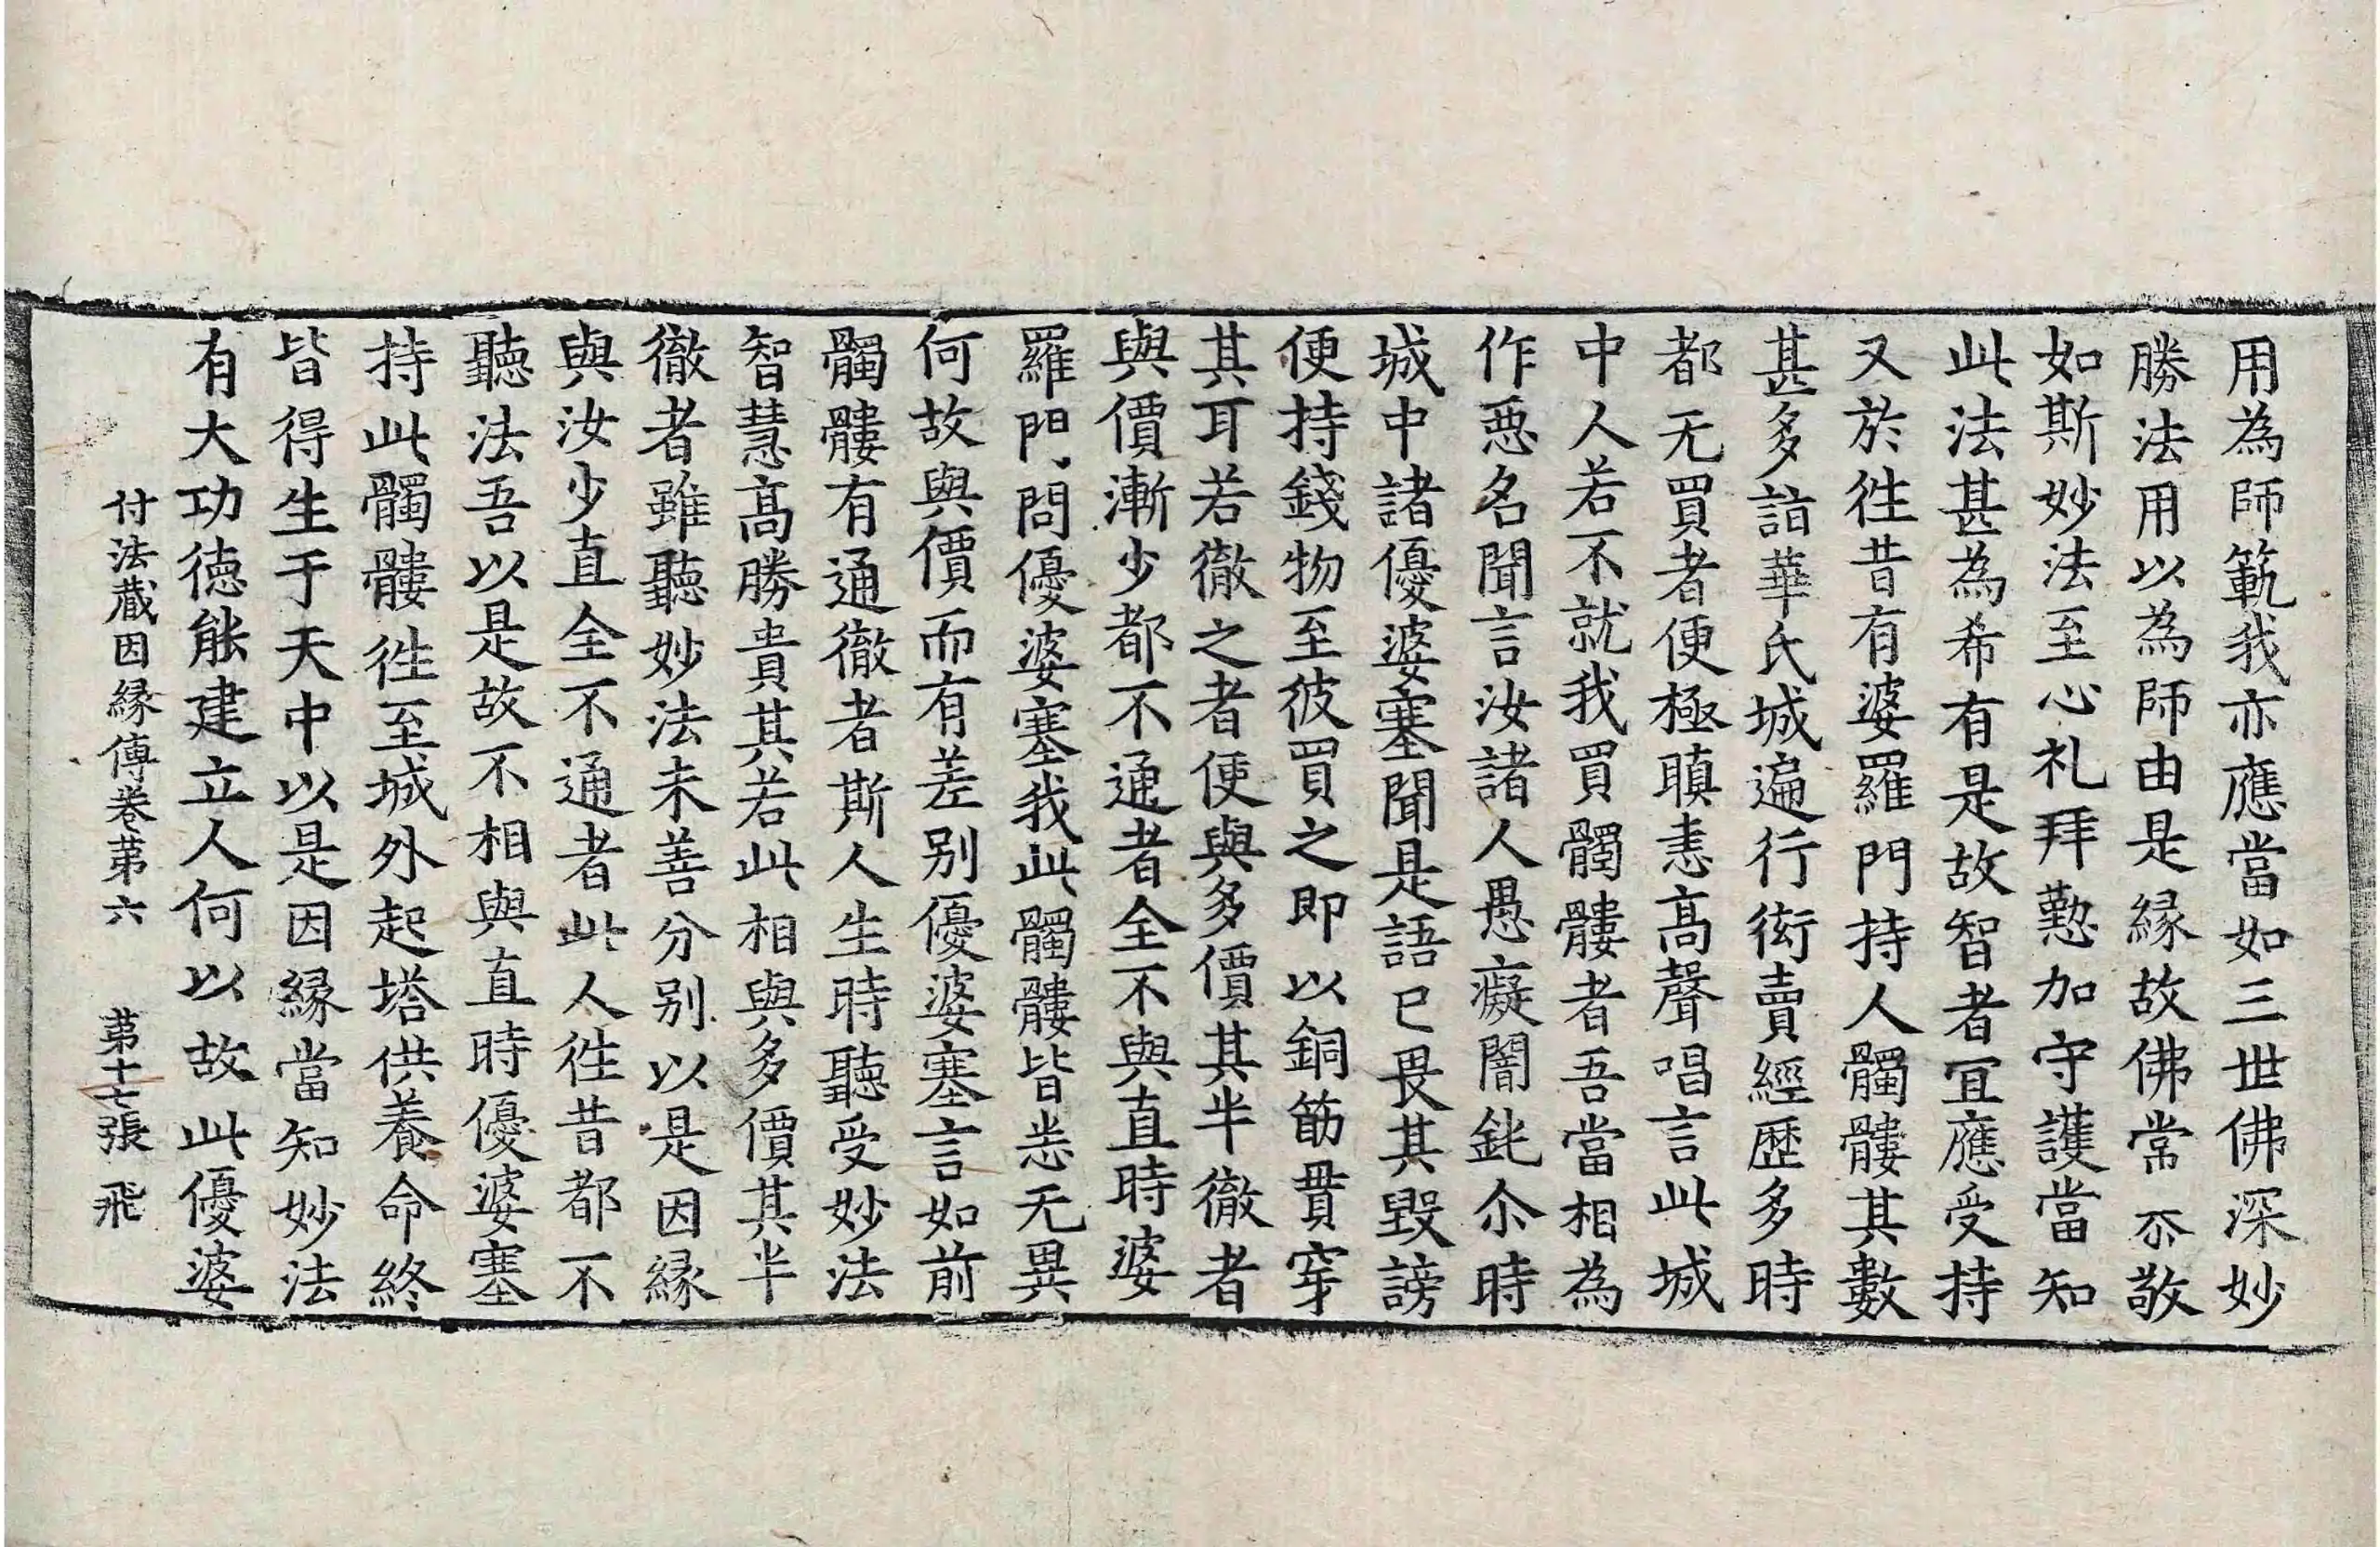 用為師範我亦應當如三世佛深妙
勝法用以為師由是緣故佛常恭敬
如斯妙法至心礼拜懃加守護當知
此法甚為希有是故智者冝應受持
又於徃昔有婆羅門持人髑髏其數
甚多詣華氏城遍行衒賣經歷多時
都无買者便極瞋恚髙聲唱言此城
中人若不就我買髑髏者吾當相為
作惡名聞言汝諸人愚癡闇鈍尒時
城中諸優婆塞聞是語已畏其毀謗
便持錢物至彼買之即以銅筯貫穿
其耳若徹之者便與多價其半徹者
與價漸少都不通者全不與直時婆
羅門問優婆塞我此髑髏皆悉无異
何故與價而有差别優婆塞言如前
髑髏有通徹者斯人生時聽受妙法
智慧髙勝貴其若此相與多價其半
徹者雖聽妙法未善分别以是因緣
與汝少直全不通者此人徃昔都不
聽法吾以是故不相與直時優婆塞
持此髑髏徃至城外起塔供養命終
皆得生于天中以是因緣當知妙法
有大功德能建立人何以故此優婆
付法藏因緣傳卷苐六　苐十七張　飛